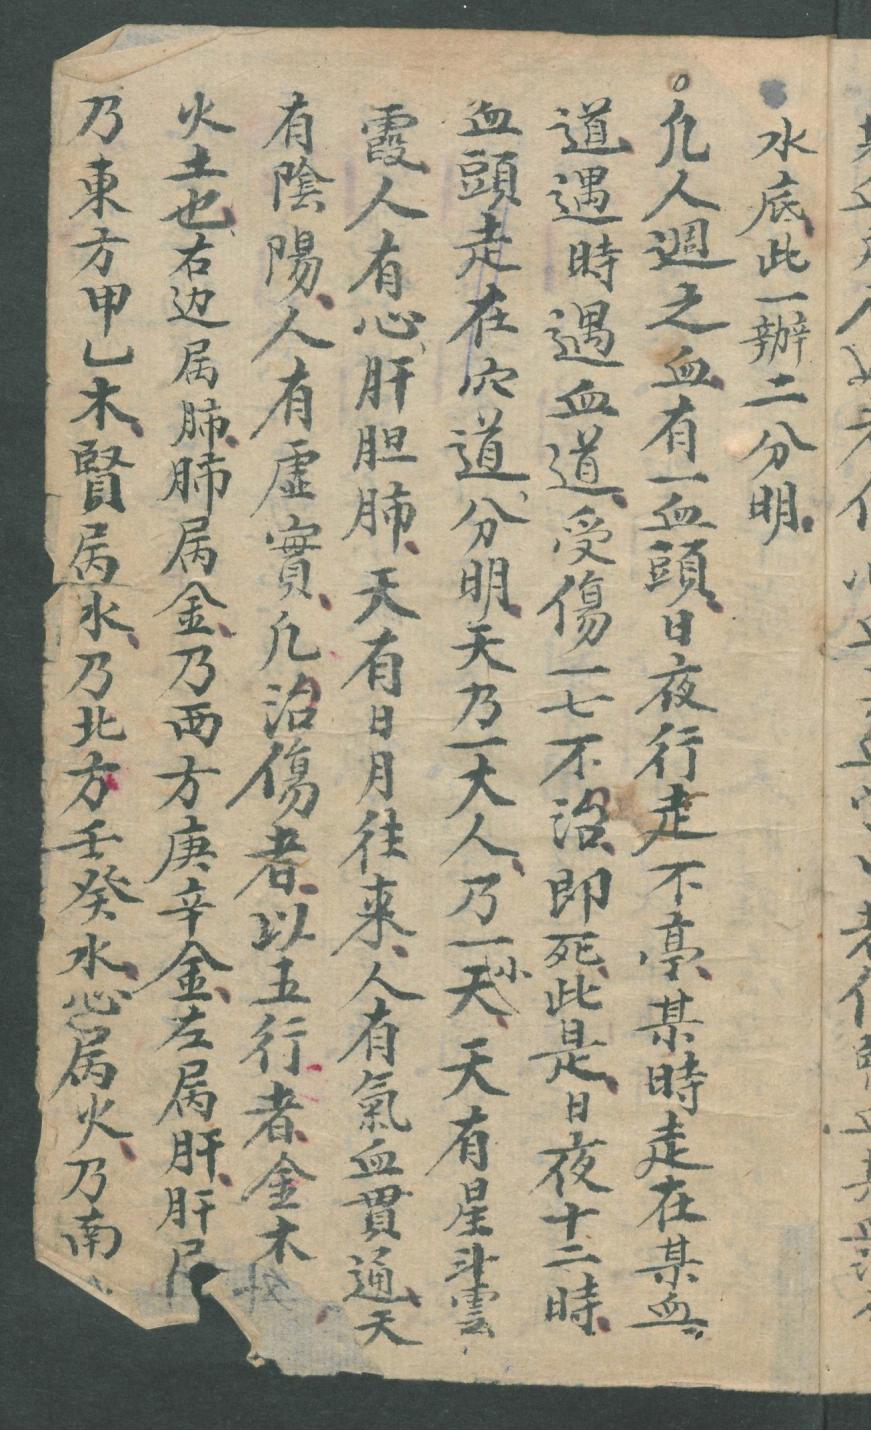 水底此一辦二分明
凢人週之血有一血頭日夜行走不亭某時走在某血
道遇時遇血道受傷一七不治即死此是日夜十二時
血頭走在穴道分明天乃一大人乃一小天天有星斗雲
霞人有心肝胆肺天有日月往来人有氣血貫通天
有陰陽人有虛實凢治傷者以五行者金木
火土也右边属肺肺属金乃西方庚辛金左属肝肝
乃東方甲乙木賢属水乃北方壬癸水心属火乃南